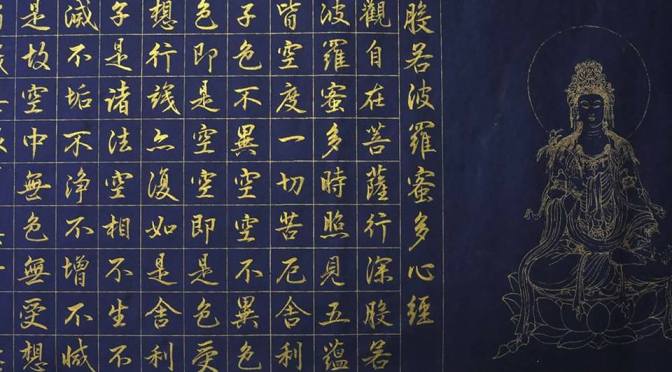 般若波羅蜜多心經
觀自在菩薩行深般若
波羅蜜多時照見五蘊
皆空度一切苦厄舍利
子色不異空空不異色
色即是空空即是色受
想行識亦復如是舍利
子是諸法空相不生不
滅不垢不淨不增不減
是故空中無色無受想